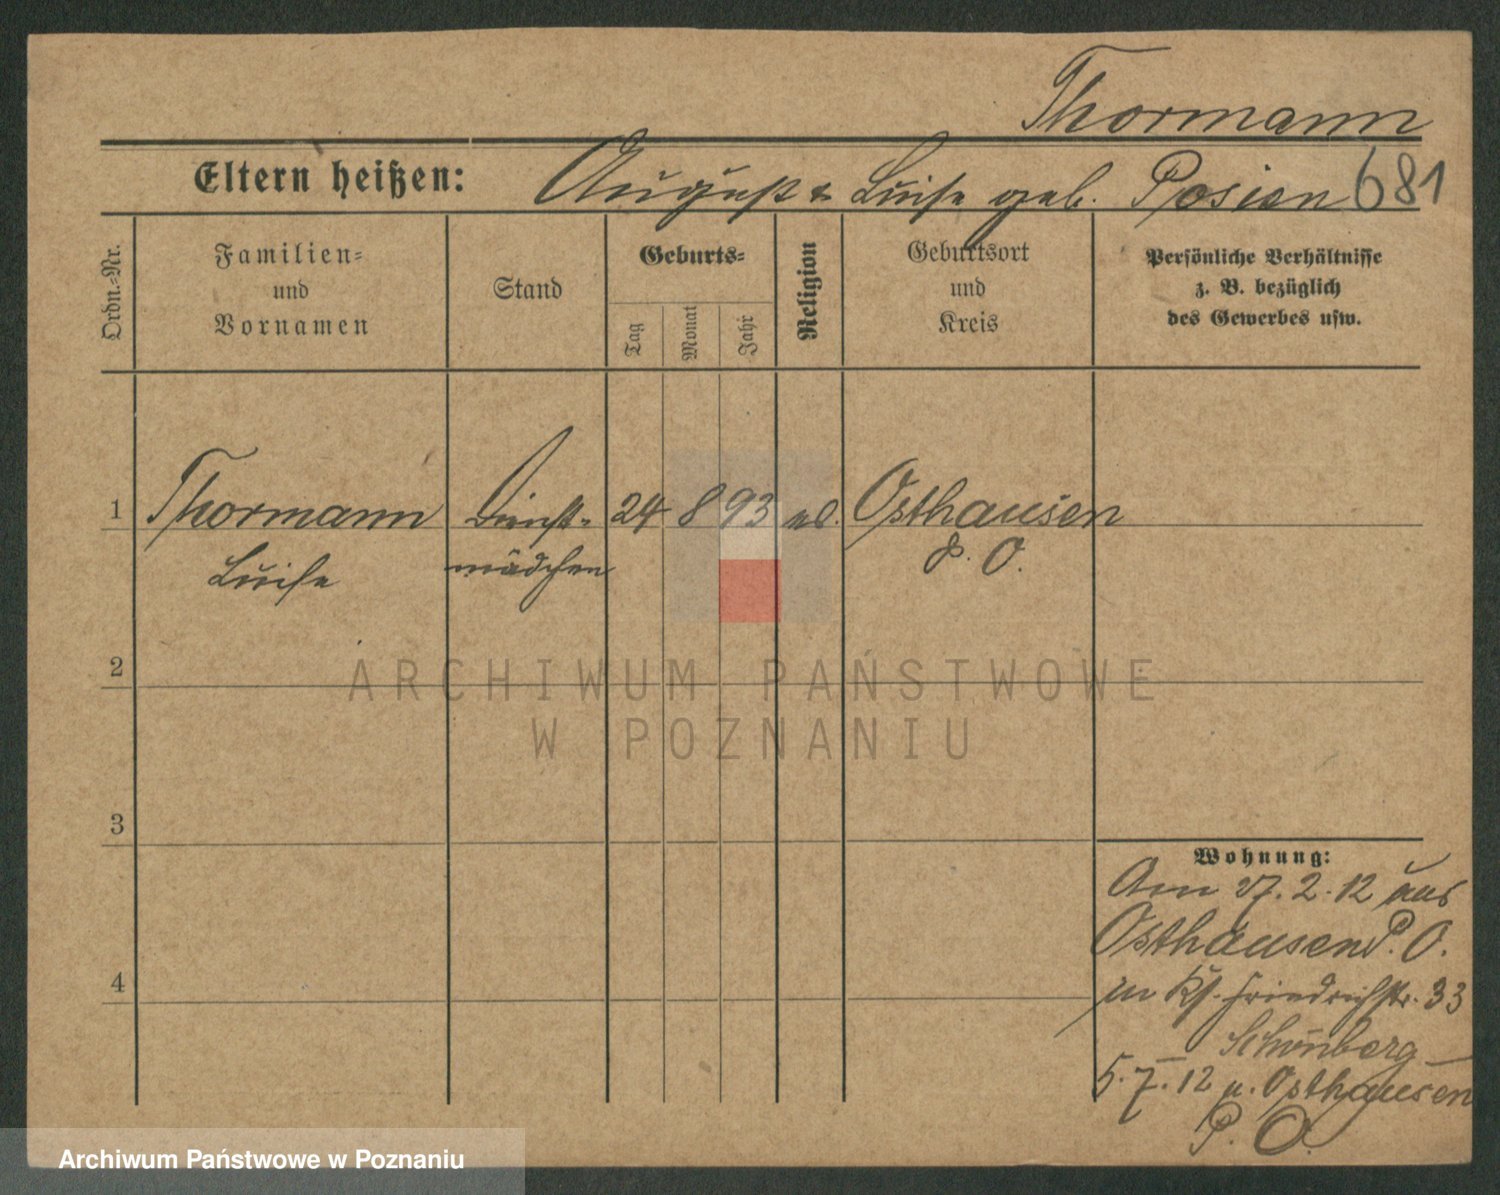 Thormann
Eltern heißen: August & Luise geb. Posien 681
Ordn.-Nr.
Familien-
und
Vornamen
Stand
Geburts-
Tag
Monat
Jahr
Religion
Geburtsort
und
Kreis
Persönliche Verhältnisse
z. B. bezüglich
des Gewerbes usw.
1 Thormann Dienst- 24 8 93 Osthausen
Luise mädchen P. O.
2
3
4
Wohnung:
Am 27.2.12 aus
Osthausen P. O.
in Friedrichstr. 33
Schönberg
5.7.12 n. Osthausen
P. O.
ARCHIWUM PAŃSTWOWE
W POZNANIU
Archiwum Państwowe w Poznaniu